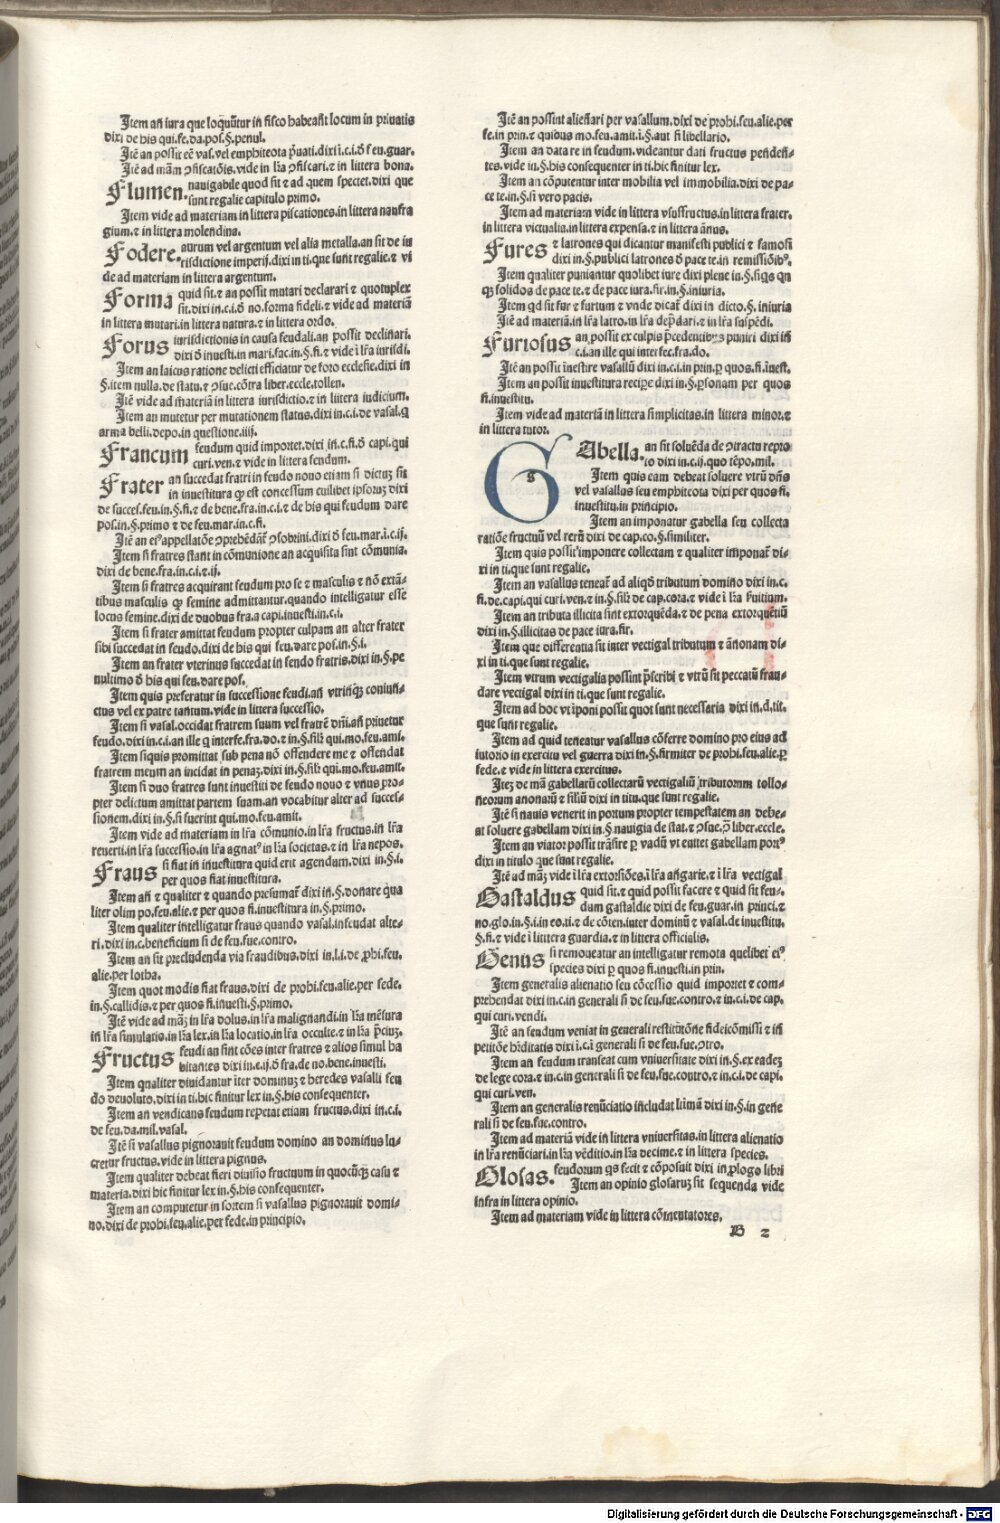 Item añ iura que loq̃uũtur iñ fisco habeañt locum in priuatis
dixi de his qui.fe.da.pos.§.penul.
Itē an possit eē vas.vel emphiteota p̃uati.dixi ĩ.c.i.δ feu.guar.
Itē ad mãm ꝯfiscatõis.vide in lr̃a ꝯfiscari.⁊ in littera bona.
Flumen. nauigabile quod sit ⁊ ad quem spectet.dixi que
sunt regalie capitulo primo.
Item vide ad materiam in littera piscationes.in littera naufra
gium.⁊ in littera molendina.
Fodere. aurum vel argentum vel alia metalla.an sit de iu
risdictione imperij.dixi in ti.que sunt regalie.⁊ vi
de ad materiam in littera argentum.
Forma quid sit.⁊ an possit mutari declarari ⁊ quotuplex
sit.dixi in.c.i.δ no.forma fideli.⁊ vide ad materiã
in littera mutari.in littera natura.⁊ in littera ordo.
Forus iurisdictionis in causa feudali.an possit declinari.
dixi δ inuesti.in mari.fac.in.§.fi.⁊ vide ĩ lr̃a iurisdi.
Item an laicus ratione delicti efficiatur de foro ecclesie.dixi in
§.item nulla.de statu.⁊ ꝯsue.cõtra liber.eccle.tollen.
Itē vide ad materiã in littera iurisdictio.⁊ in littera iudicium.
Item an mutetur per mutationem status.dixi in.c.i.de vasal.q
arma belli.depo.in questione.iiij.
Francum feudum quid importet.dixi in.c.fi.δ capi.qui
curi.ven.⁊ vide in littera feudum.
Frater an succedat fratri in feudo nouo etiam si dictuȝ sit
in inuestitura ꝙ est concessum cuilibet ipsoruȝ dixi
de succes.feu.in §.fi.⁊ de bene.fra.in c.i.⁊ de his qui feudum dare
pos.in.§.primo ⁊ de feu.mar.in c.fi.
Itē an ei⁹ appellatõe ꝯprehẽdãt̃ ꝯsobrini.dixi δ feu.mar.ĩ.c.ij.
Item si fratres stant in cõmunione an acquisita sint cõmunia.
dixi de bene.fra.in.c.i.⁊.ij.
Item si fratres acquirant feudum pro se ⁊ masculis ⁊ nõ extã=
tibus masculis ꝙ femine admittantur.quando intelligatur esse
locus femine.dixi de duobus fra.a capi.inuesti.in.c.i.
Item si frater amittat feudum propter culpam an alter frater
sibi succedat in feudo.dixi de his qui feu.dare pos.in.§.i.
Item an frater vterinus succedat in feudo fratris.dixi in.§.pe
nultimo δ his qui feu.dare pos.
Item quis preferatur in successione feudi.añ vtrinq̃ȝ coniun=
ctus vel ex patre tantum.vide in littera successio.
Item si vasal.occidat fratrem suum vel fratrẽ dñi.añ priuetur
feudo.dixi in.c.i.an ille q interfe.fra.do.⁊ in.§.sil̃r qui.mo.feu.ami.
Item siquis promittat sub pena nõ offendere me ⁊ offendat
fratrem meum an incidat in penaȝ.dixi in.§.sil̃r qui.mo.feu.amit.
Item si duo fratres sunt inuestiti de feudo nouo ⁊ vnus pro=
pter delictum amittat partem suam.an vocabitur alter ad succes=
sionem.dixi in.§.si fuerint qui.mo.feu.amit.
Item vide ad materiam in lr̃a cõmunio.in lr̃a fructus.in lr̃a
reuerti.in lr̃a successio.in lr̃a agnat⁹ in lr̃a societas.⁊ in lr̃a nepos.
Fraus si fiat in inuestitura quid erit agendum.dixi in.§.i.
per quos fiat inuestitura.
Item añ ⁊ qualiter ⁊ quando presumat̃ dixi in.§.donare q̃ua
liter olim po.feu.alie.⁊ per quos fi.inuestitura in.§.primo.
Item qualiter intelligatur fraus quando vasal.infeudat alte=
ri.dixi in.c.beneficium si de feu.fue.contro.
Item an sit precludenda via fraudibus.dixi in.l.i.de ꝓhi.feu.
alie.per lotha.
Item quot modis fiat fraus.dixi de prohi.feu.alie.per fede.
in.§.callidis.⁊ per quos fi.inuesti.§.primo.
Itē vide ad mãȝ in lr̃a dolus.in lr̃a malignandi.in lr̃a mẽsura
iñ lr̃a simulatio.in lr̃a lex.in lr̃a locatio.in lr̃a occulte.⁊ in lr̃a p̃ciuȝ.
Fructus feudi an sint cões inter fratres ⁊ alios simul ha
bitantes dixi in.c.ij.δ fra.de no.bene.inuesti.
Item qualiter diuidantur ĩter dominuȝ ⁊ heredes vasalli feu
do deuoluto.dixi in ti.hic finitur lex in.§.his consequenter.
Item an vendicans feudum repetat etiam fructus.dixi in.c.i.
de feu.da.mil.vasal.
Itē si vasallus pignorauit feudum domino an dominus lu=
cretur fructus.vide in littera pignus.
Item qualiter debeat fieri diuisio fructuum in quocũq̃ȝ casu ⁊
materia.dixi hic finitur lex in.§.his consequenter.
Item an computetur in sortem si vasallus pignorauit domi=
no.dixi de prohi.feu.alie.per fede.in principio.
Itē an possint alienari per vasallum.dixi de prohi.feu.alie.per
fe.in prin.⁊ quibus mo.feu.amit.ĩ.§.aut si libellario.
Item an data re in feudum.videantur dati fructus penden=
tes.vide in.§.his consequenter in ti.hic finitur lex.
Item an cõputentur inter mobilia vel immobilia.dixi de pa=
ce te.in.§.si vero pacis.
Item ad materiam vide in littera vsusfructus.in littera frater.
in littera victualia.in littera expensa.⁊ in littera ãnus.
Fures ⁊ latrones qui dicantur manifesti publici ⁊ famosi
dixi in.§.publici latrones δ pace te.in remissiõib⁹.
Item qualiter puniantur quolibet iure dixi plene in.§.siq̃s qn
q̃ȝ solidos de pace te.⁊ de pace iura.fir.in.§.iniuria.
Item qd sit fur ⁊ furtum ⁊ vnde dicat̃ dixi in dicto.§.iniuria
Itē ad materiã.in lr̃a latro.in lr̃a dep̃dari.⁊ in lr̃a suspẽdi.
Furiosus an possit ex culpis p̃cedentibus puniri dixi in
c.i.an ille qui interfec.fra.do.
Itē an possit ĩuestire vasallũ dixi in.c.i.in prin.ꝑ quos.fi.ĩuest.
Item an possit inuestitura recipe dixi in.§.ꝑsonam per quos
fi.inuestitu.
Item vide ad materiã in littera simplicitas.in littera minor.⁊
in littera tutor.
GAbella. an sit soluẽda de ꝯtractu repro
to dixi in.c.ij.quo tẽpo.mil.
Item quis eam debeat soluere vtrũ dñs
vel vasallus seu emphiteota dixi per quos fi.
inuestitu.in principio.
Item an imponatur gabella seu collecta
ratiõe fructuũ vel rerũ dixi de cap.co.§.similiter.
Item quis possit imponere collectam ⁊ qualiter imponat̃ di=
xi in ti.que sunt regalie.
Item an vasallus teneat̃ ad aliqδ tributum domino dixi in.c.
fi.de.capi.qui curi.ven.⁊ in.§.sil̃r de cap.cora.⁊ vide ĩ lr̃a s̃uitium.
Item an tributa illicita sint extorquẽda.⁊ de pena extorquẽtiũ
dixi in.§.illicitas de pace iura.fir.
Item que differentia sit inter vectigal tributum ⁊ ãnonam di=
xi in ti.que sunt regalie.
Item vtrum vectigalia possint p̃scribi ⁊ vtrũ sit peccatũ frau=
dare vectigal dixi in ti.que sunt regalie.
Item ad hoc vt ĩponi possit quot sunt necessaria dixi in.d.tit.
que sunt regalie.
Item ad quid teneatur vasallus cõferre domino pro eius ad
iutorio in exercitu vel guerra dixi in.§.firmiter de prohi.feu.alie.ꝑ
fede.⁊ vide in littera exercitus.
Iteȝ de mã gabellarũ collectarũ vectigaliũ tributorum tollo=
neorum anonarũ ⁊ siliũ dixi in titu.que sunt regalie.
Itē si nauis venerit in portum propter tempestatem an debe=
at soluere gabellam dixi in.§.nauigia de stat.⁊ ꝯsue.ꝯ̃ liber.eccle.
Item an viator possit trãsire ꝑ vadũ vt euitet gabellam port⁹
dixi in titulo que sunt regalie.
Itē ad mãȝ vide ĩ lr̃a extorsiões.ĩ lr̃a angarie.⁊ ĩ lr̃a vectigal
Gastaldus quid sit.⁊ quid possit facere ⁊ quid sit feu=
dum gastaldie dixi de feu.guar.in princi.⁊
no.glo.in.§.i.in eo.ti.⁊ de cõten.inter dominũ ⁊ vasal.de inuestitu.
§.fi.⁊ vide ĩ littera guardia.⁊ in littera officialis.
Genus si remoueatur an intelligatur remota quelibet ei⁹
species dixi ꝑ quos fi.inuesti.in prin.
Item generalis alienatio seu cõcessio quid importet ⁊ com=
prehendat dixi in.c.in generali si de feu.fue.contro.⁊ in.c.i.de cap.
qui curi.vendi.
Itē an feudum veniat in generali restitutõne fideicõmissi ⁊ in
petitõe hr̃ditatis dixi ĩ.c.ĩ generali si de feu.fue.ꝯtro.
Item añ feudum transeat cum vniuersitate dixi in.§.ex eadeȝ
de lege cora.⁊ in.c.in generali si de feu.fue.contro.⁊ in.c.i.de capi.
qui curi.ven.
Item an generalis renũciatio includat l̃imã dixi in.§.in gene
rali si de feu.fue.contro.
Item ad materiã vide in littera vniuersitas.in littera alienatio
in lr̃a renũciari.in lr̃a vẽditio.in lr̃a decime.⁊ in littera species.
Glosas. feudorum q̃s fecit ⁊ cõposuit dixi in ꝓlogo libri
Item an opinio glosaruȝ sit sequenda vide
infra in littera opinio.
Item ad materiam vide in littera cõmentatores.
B 2
Digitalisierung gefördert durch die Deutsche Forschungsgemeinschaft - DFG